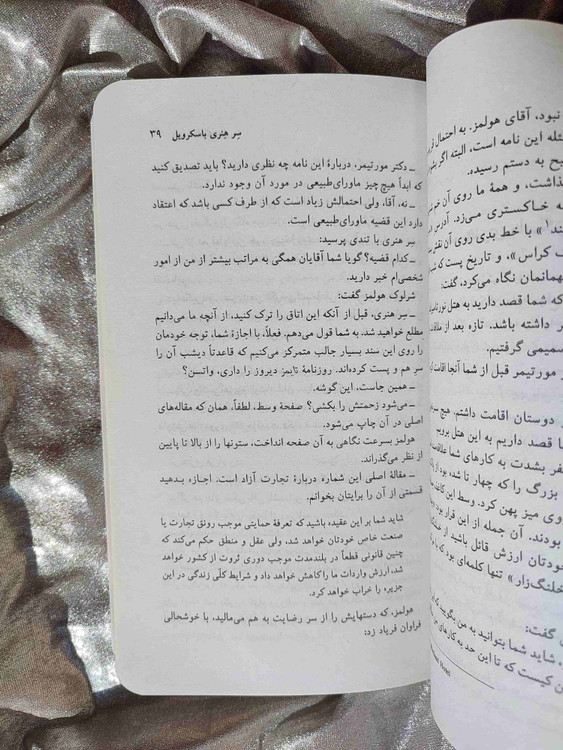 سِر هنری باسکرویل ۳۹
ـ دکتر مورتیمر، دربارهٔ این نامه چه نظری دارید؟ باید تصدیق کنید
که ابداً هیچ چیز ماورای‌طبیعی در مورد آن وجود ندارد.
ـ نه، آقا، ولی احتمالش زیاد است که از طرف کسی باشد که اعتقاد
دارد این قضیه ماورای‌طبیعی است.
سِر هنری با تندی پرسید:
ـ کدام قضیه؟ گویا شما آقایان همگی به مراتب بیشتر از من از امور
شخصی‌ام خبر دارید.
شرلوک هولمز گفت:
ـ سِر هنری، قبل از آنکه این اتاق را ترک کنید، از آنچه ما می‌دانیم
مطلع خواهید شد. به شما قول می‌دهم. فعلاً، با اجازهٔ شما، توجه خودمان
را روی این سند بسیار جالب متمرکز می‌کنیم که قاعدتاً دیشب آن را
سرِ هم و پست کرده‌اند. روزنامهٔ تایمز دیروز را داری، واتسن؟
ـ همین جاست، این گوشه.
ـ می‌شود زحمتش را بکشی؟ صفحهٔ وسط، لطفاً، همان که مقاله‌های
اصلی در آن چاپ می‌شود.
هولمز بسرعت نگاهی به آن صفحه انداخت، ستونها را از بالا تا پایین
از نظر می‌گذراند.
ـ مقالهٔ اصلی این شماره دربارهٔ تجارت آزاد است. اجازه بدهید
قسمتی از آن را برایتان بخوانم.
شاید شما بر این عقیده باشید که تعرفهٔ حمایتی موجب رونق تجارت یا
صنعت خاص خودتان خواهد شد، ولی عقل و منطق حکم می‌کند که
چنین قانونی قطعاً در بلندمدت موجب دوری ثروت از کشور خواهد
شد، ارزش واردات ما را کاهش خواهد داد و شرایط کلّی زندگی در این
جزیره را خراب خواهد کرد.
هولمز، که دستهایش را از سر رضایت به هم می‌مالید، با خوشحالی
فراوان فریاد زد:
نبود، آقای هولمز. به احتمال
این نامه است، البته اگر
به دستم رسیده.
گذاشت، و همهٔ ما روی آن
خاکستری می‌زد. آدرس
با خط بدی روی آن
کراس»، و تاریخ پست که
مهمانمان نگاه می‌کرد، گفت:
که شما قصد دارید به هتل
داشته باشد. تازه بعد از
تصمیمی گرفتیم.
مورتیمر قبل از شما آنجا اقامت
دوستان اقامت داشتم. هیچ
ما قصد داریم به این هتل برویم
بشدت به کارهای شما
بزرگ را که چهار تا شده بود
روی میز پهن کرد. وسط این
بودند. آن جمله از این قرار بود:
خودتان ارزش قائل باشید از
خلنگزار» تنها کلمه‌ای بود که
گفت:
شاید شما بتوانید به من بگویید که
کیست که تا این حد به کارهای